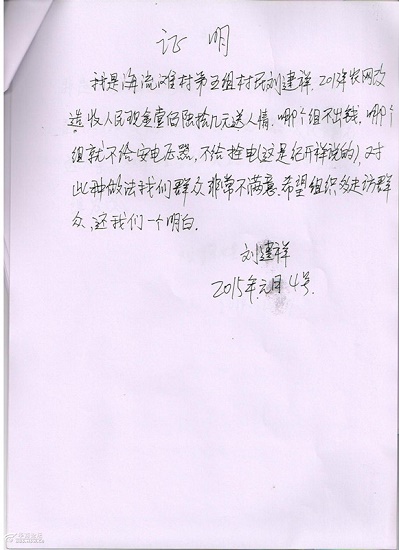 证明
我是海流滩村第五组村民刘建祥，2013年农网改
造收人民现金壹佰陆拾几元送人情。哪个组不出钱，哪个
组就不给安电后器，不给拴电(这是纪开祥说的)，对
此种做法我们群众非常不满意，希望组织多走访群
众，还我们一个明白。
刘建祥
2015年元月4号.